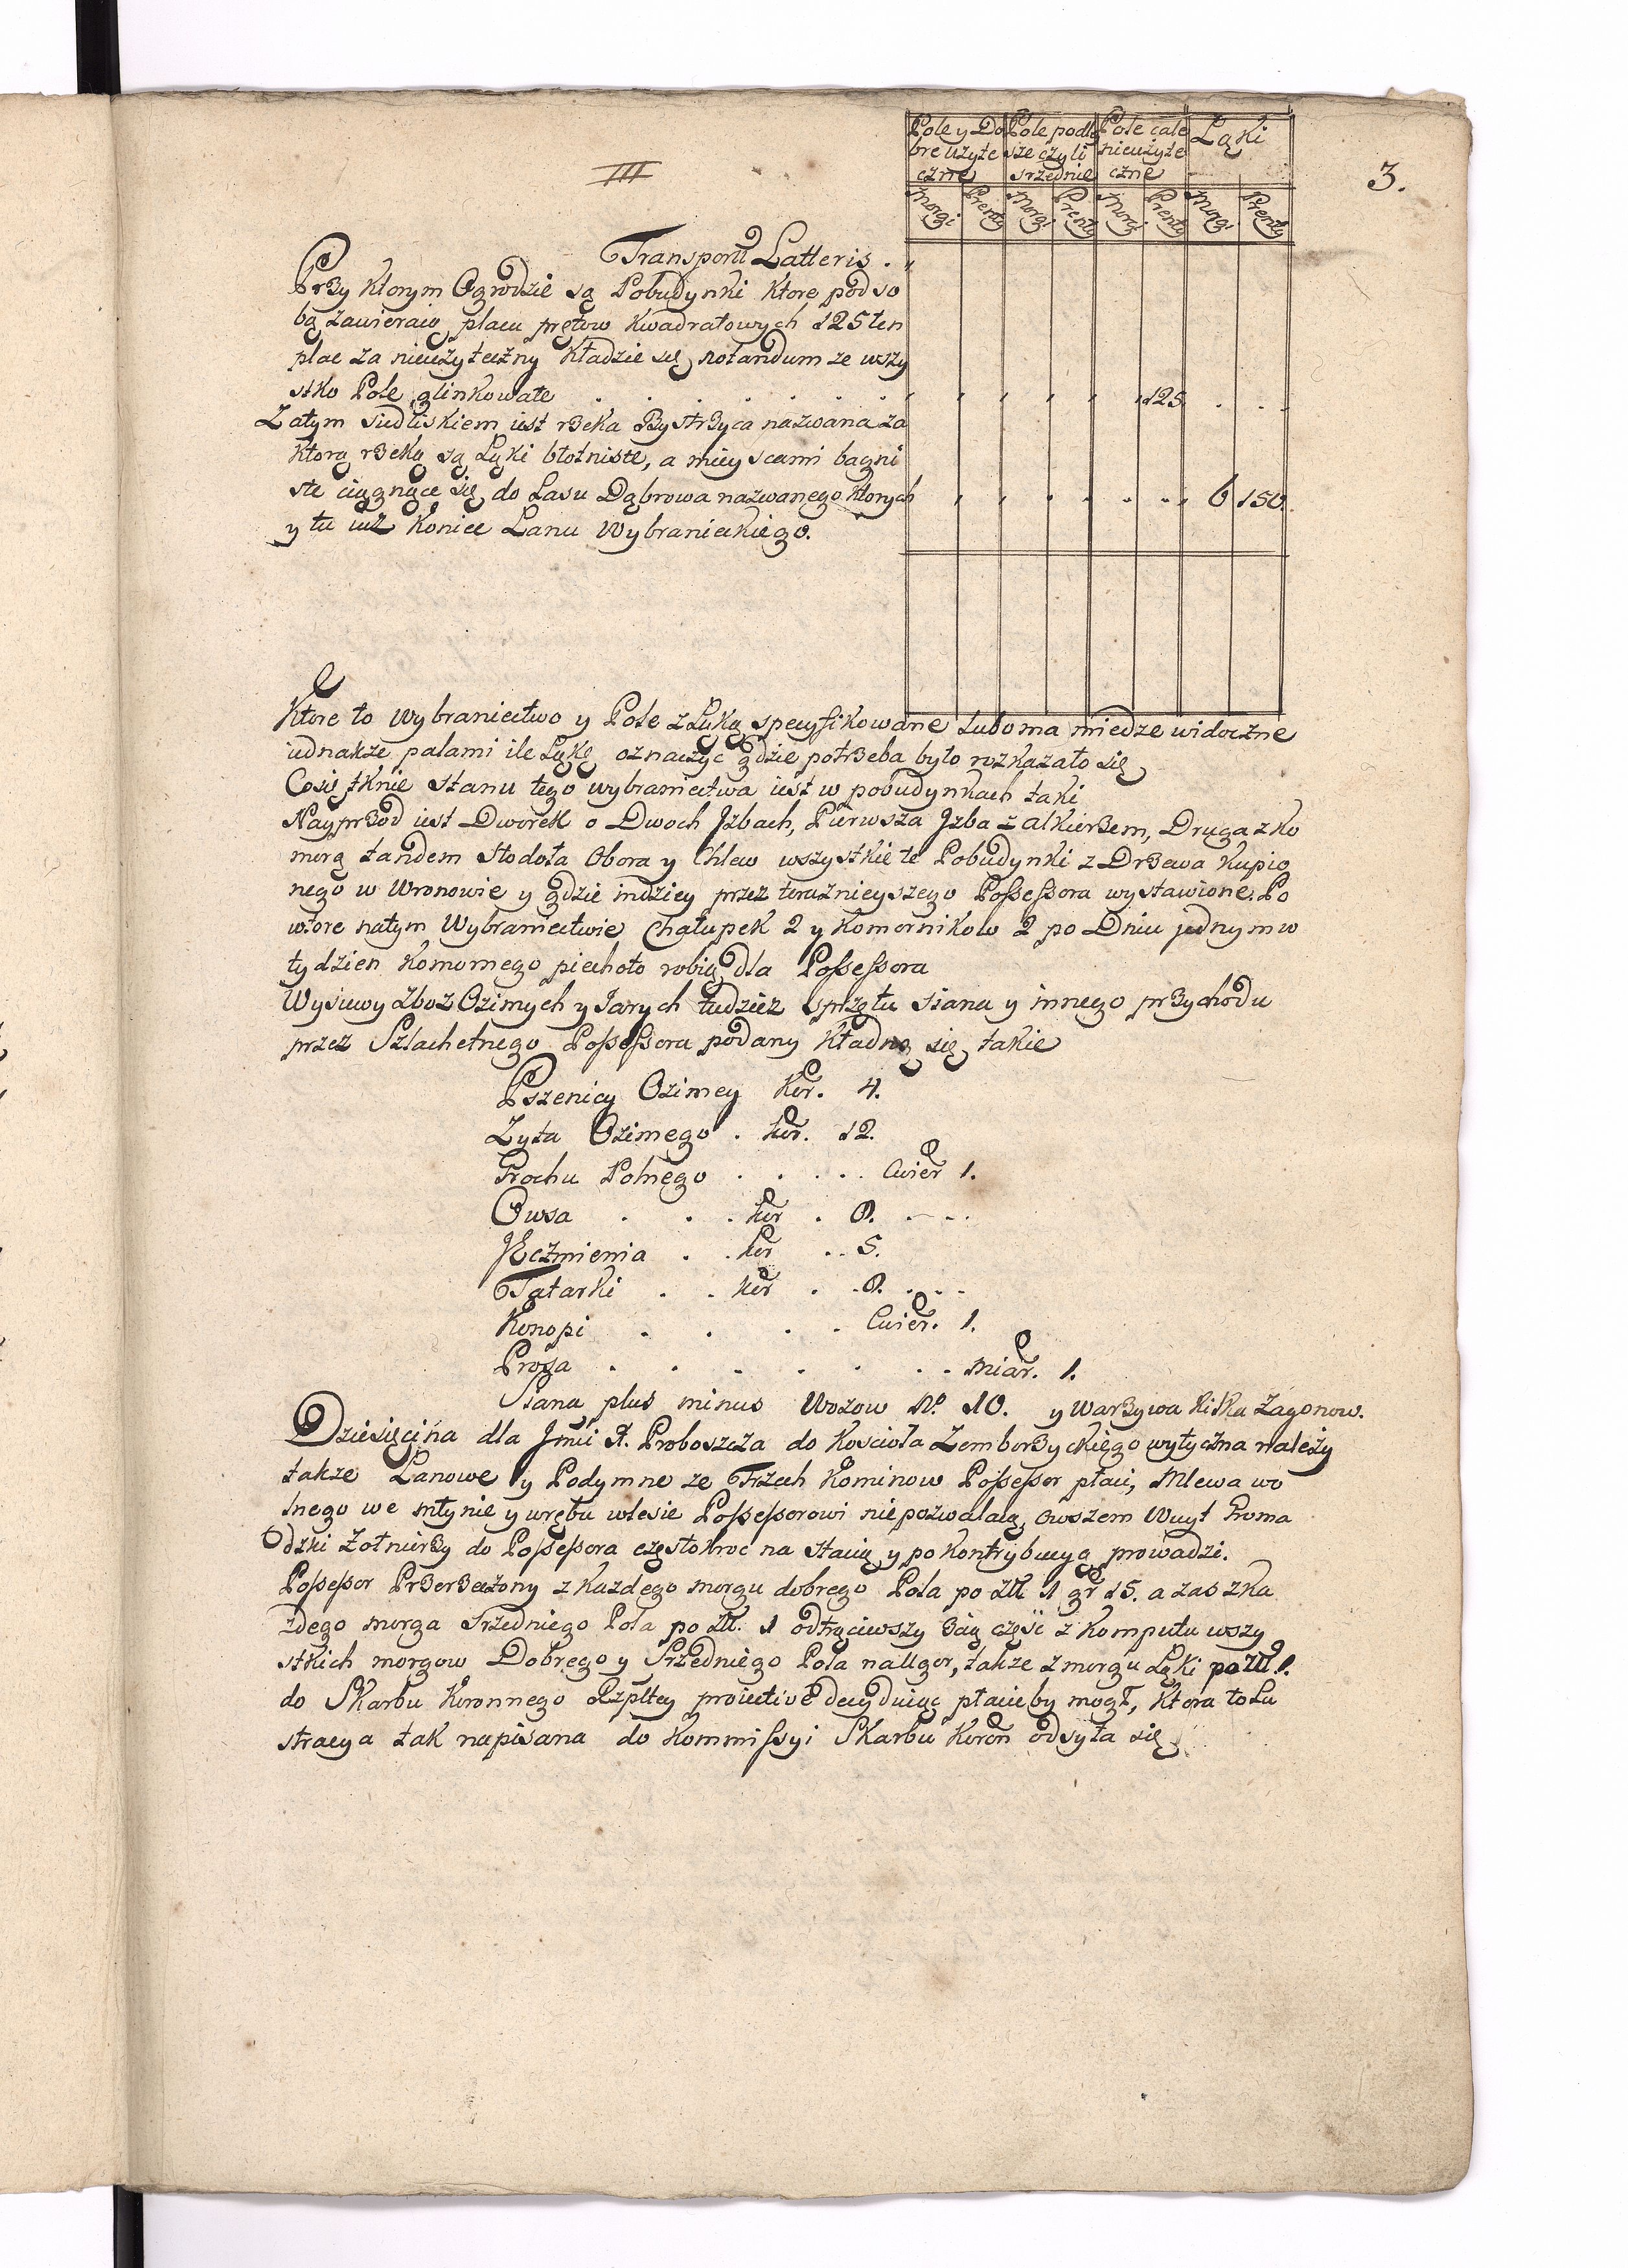 III
3.
Pole y Do Pole podley Pole cale Łąki
bre użyte sze czyli nieużyte
czne srzednie czne
Morgi Prenty Morgi Prenty Morgi Prenty Morgi Prenty
Transport Latteris
Przy ktorym Ogrodzie są Pobudynki ktore pod so
bą zawieraią placu prętow kwadratowych 125 ten
plac za nieużyteczny kładzie się notandum ze wszy
stko Pole glinkowate 125
Zatym siedliskiem iest rzeka Bystrzyca nazwana za
ktorą rzeką są Łąki błotniste, a mieyscami bagni
ste ciągnące się do Lasu Dąbrowa nazwanego ktorych 6 150
y tu iuż koniec Lanu Wybranieckiego.
Ktore to Wybraniectwo y Pole z Łąką specyfikowane lubo ma miedze widoczne
iednakze palami ile Łąkę oznaczyć gdzie potrzeba było rozkazało się
Co się tknie stanu tego wybraniectwa iest w pobudynkach taki
Nayprzod iest Dworek o Dwoch Jzbach, Pierwsza Jzba z alkierzem, Druga z ko
morą tandem Stodoła Obora y Chlew wszystkie te Pobudynki z Drzewa kupio
nego w Wronowie y gdzie indziey przez teraznieyszego Possessora wystawione. Po
wtore natym Wybraniectwie Chałupek 2 y Komornikow 2 po Dniu jednym w
tydzien komornego piechoto robią dla Possessora
Wysiewy zboz Ozimych y Jarych tudziez sprzętu siana y innego przychodu
przez Szlachetnego Possessora podany kładną się takie
Pszenicy Ozimey kor. 4.
Zyta Ozimego . kor. 12.
Grochu Polnego . . . . . Cwier 1.
Owsa . . . kor . 9. . . .
JEczmienia . . kor . . 5.
Tatarki . . kor . . 9. . . .
Konopi . . . . Cwier. 1.
Prosa . . . . . . . miar. 1.
Siana plus minus Wozow N. 10. y Warzywa kilka Zagonow.
Dziesięcina dla Jmci X. Proboszcza do Kościoła Zemborzyckiego wytyczna należy
takze Lanowe y Podymne ze Trzech Kominow Possessor płaci, Mlewa wo
lnego we młynie y wrębu wlesie Possessorowi niepozwalaią, owszem Wuyt Groma
dzki Zołnierzy do Possessora częstokroc na stacią y po kontrybucyą prowadzi.
Possessor Przerzeczony z kazdego morgu dobrego Pola po Zł 1 gr 15. a zas z ka
zdego morga srzedniego Pola po Zł. 1 odtrąciwszy 3cią część z komputu wszy
stkich morgow Dobrego y Srzedniego Pola na Ugor, takze z morgu Łąki po Zł 1.
do Skarbu Koronnego Rzpltey proiective decyduiąc płacicby mogł, ktora to Lu
stracya tak napisana do Kommissyi Skarbu Koron odsyła się